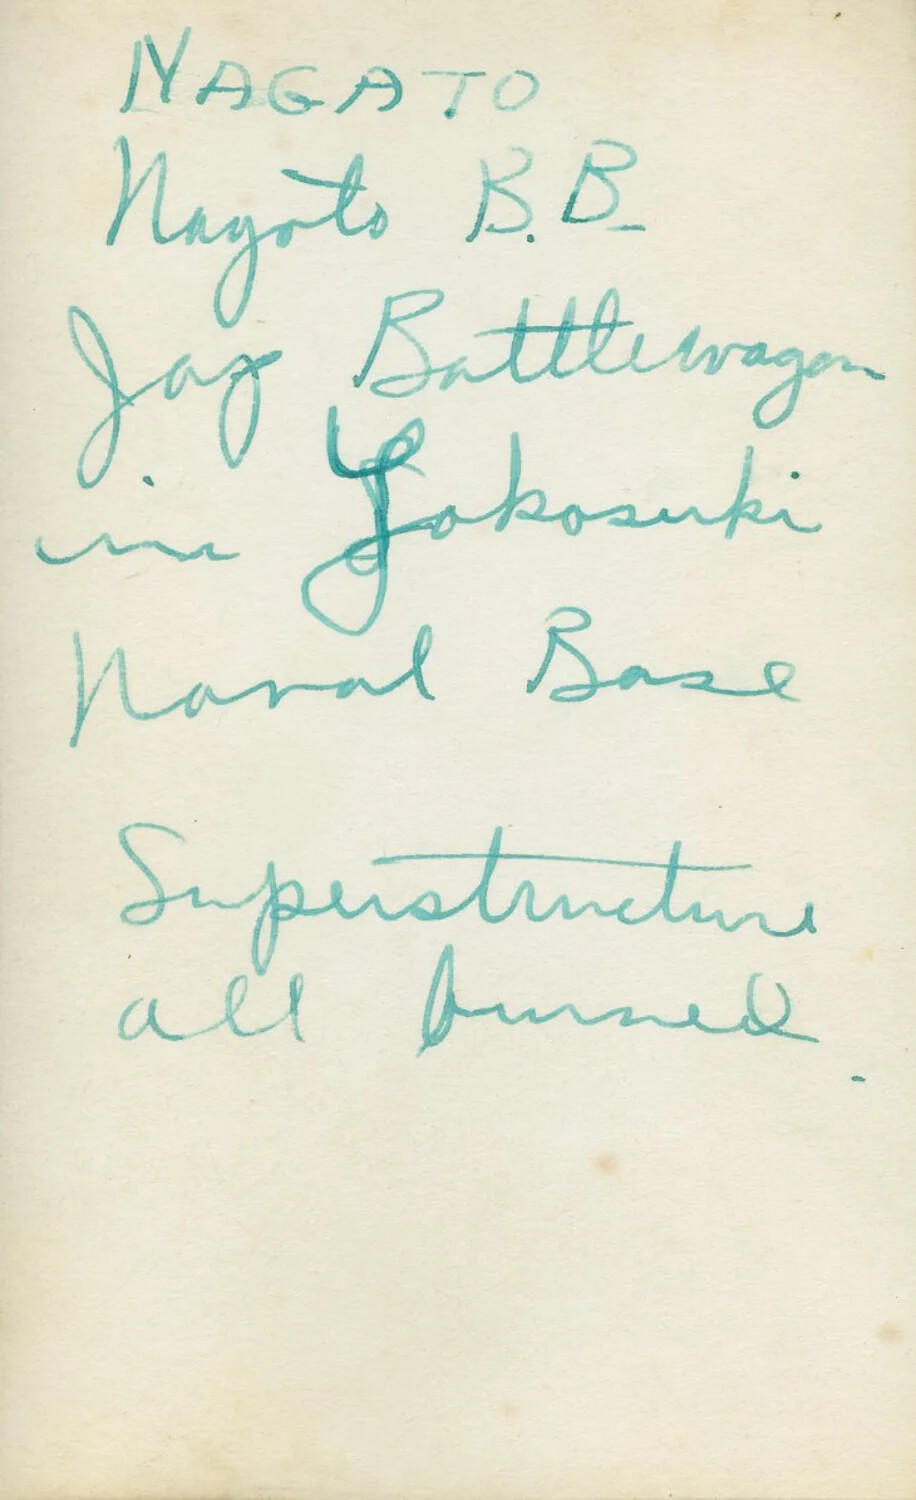 NAGATO
Nagato B.B.
Jap Battlewagon
in Yokosuki
Naval Base
Superstructure
all burned.